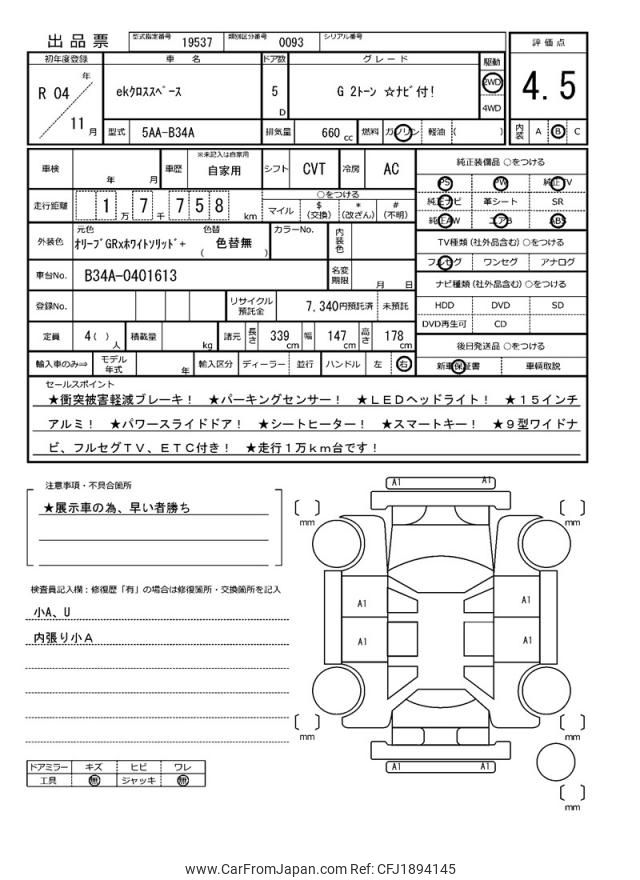 出品票 型式指定番号 19537 類別区分番号 0093 シリアル番号
初年度登録 車名 ドア数 グレード 駆動 評価点
R 04 年 11 月 ekクロススペース 5 D G 2トーン ☆ナビ付! 2WD 4WD 4.5
型式 5AA-B34A 排気量 660 cc 燃料 ガソリン 軽油 ( ) 内装 A B C
車検 年 月 車歴 ※未記入は自家用 自家用 シフト CVT 冷房 AC
純正装備品 ○をつける
PS PW 純正TV
純正ナビ 革シート SR
純正AW エアB ABS
走行距離 1 万 7 千 7 5 8 km
○をつける
マイル $ (交換) * (改ざん) # (不明)
外装色 元色 オリーブGRxホワイトソリッド+ 色替 ( 色替無 ) カラーNo. 内装色
TV種類 (社外品含む) ○をつける
フルセグ ワンセグ アナログ
車台No. B34A-0401613 名変期限 月 日
ナビ種類 (社外品含む) ○をつける
HDD DVD SD
DVD再生可 CD
登録No. リサイクル預託金 7,340円預託済 未預託
定員 4 ( ) 人 積載量 kg 諸元 長さ 339 cm 幅 147 cm 高さ 178 cm
後日発送品 ○をつける
新車保証書 車輌取説
輸入車のみ⇒ モデル年式 年 輸入区分 ディーラー 並行 ハンドル 左 右
セールスポイント
★衝突被害軽減ブレーキ! ★パーキングセンサー! ★LEDヘッドライト! ★15インチ
アルミ! ★パワースライドドア! ★シートヒーター! ★スマートキー! ★9型ワイドナ
ビ、フルセグTV、ETC付き! ★走行1万km台です!
注意事項・不具合箇所
★展示車の為、早い者勝ち
検査員記入欄:修復歴「有」の場合は修復箇所・交換箇所を記入
小A、U
内張り小A
A1 A1
mm mm
A1 A1
A1 A1
mm mm
A1 A1
mm
ドアミラー キズ ヒビ ワレ
工具 無 ジャッキ 無
www.CarFromJapan.com Ref: CFJ1894145